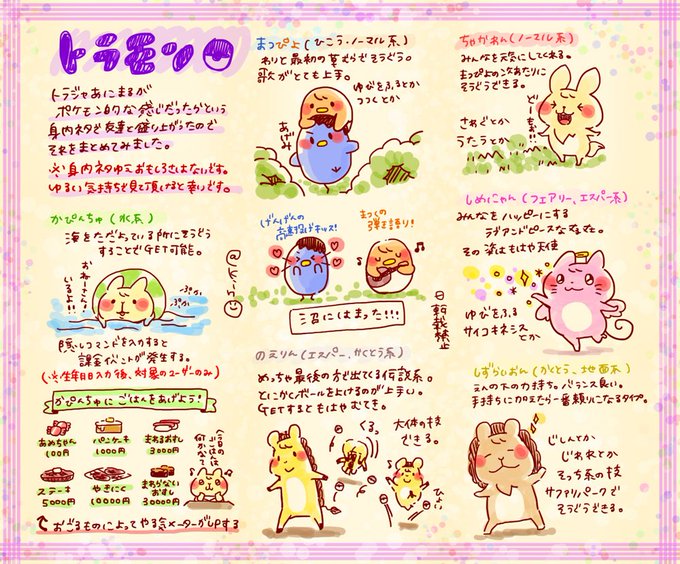 トラモン
トラジャあにまるが
ポケモン的な感じだったかという
身内ネタで友達と盛り上がったので
それをまとめてみました。
※身内ネタゆえおもしろさはないです。
ゆるい気持ちで見て頂けると幸いです。
かぴんちゅ(水系)
海をただよっている所にそうぐう
することでGET可能。
おねーさん!
いるよ!!
ぷか
ぷか
隠しコマンドを入力すると
課金イベントが発生する。
(※生年月日入力後、対象のユーザーのみ)
かぴんちゅにごはんをあげよう!
あめちゃん
100円
パンケーキ
1000円
まわるおすし
3000円
ステーキ
5000円
やきにく
10000円
まわらない
おすし
30000円
おごるものによってやる気メーターがUPする
まつぴよ(ひこう・ノーマル系)
わりと最初の草むらでそうぐう。
歌がとても上手。
ゆびをふるとか
つつくとか
あげみ
げんげんの
高速投げキッス!
まつくの
弾き語り!
沼にはまった!!!
転載禁止
のえりん(エスパー、かくとう系)
めっちゃ最後の方に出てくる伝説系。
とにかくボールを上げるのが上手い。
GETするともはやむてき。
大体の技
できる。
くるっ
ひょい
ちゃかれん(ノーマル系)
みんなを元気にしてくれる。
まつぴよの次あたりに
そうぐうできる。
どーもぉ!!
さわぐとか
うたうとか
しめにゃん(フェアリー、エスパー系)
みんなをハッピーにする
ラブアンドピースなマスマで。
その姿はもはや天使
ゆびをふる
サイコキネシス
とか
しずらいおん(かくとう、地面系)
えんの下の力持ち。バランス良い。
手持ちに加えたら一番頼りになるタイプ。
じしんとか
じわれとか
そっち系の技
サファリパークで
そうぐうできる。